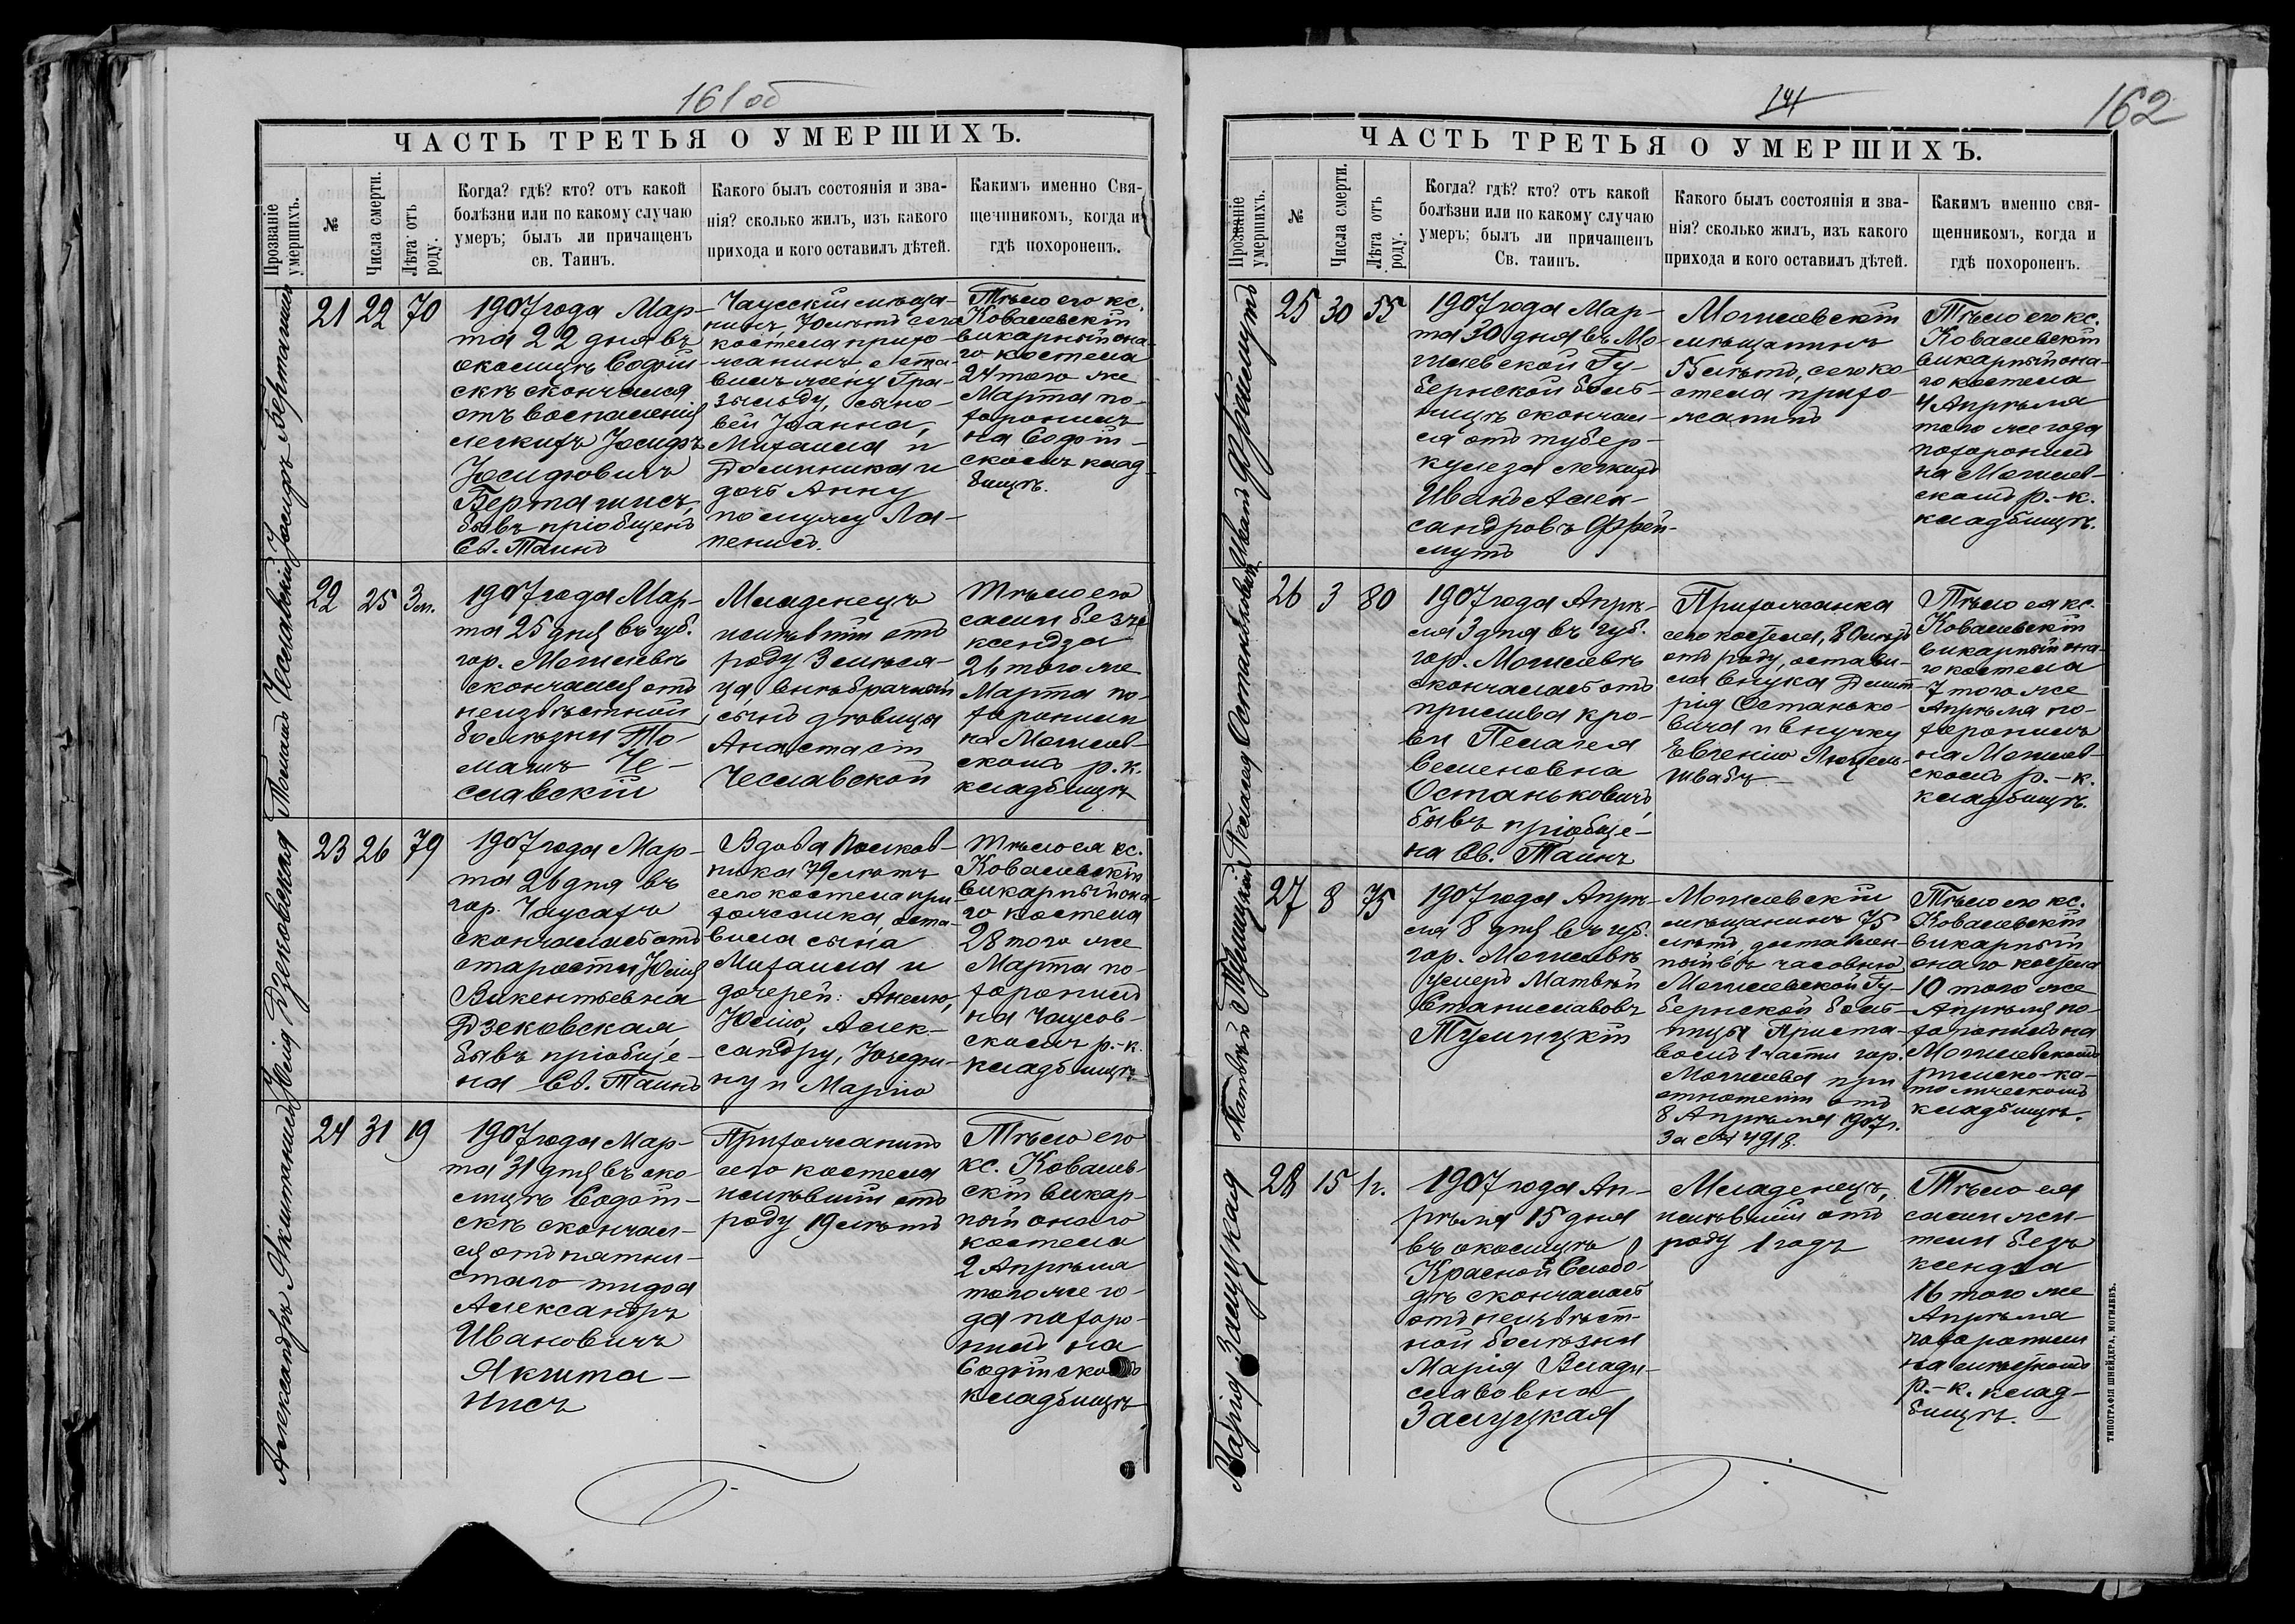 161 об
ЧАСТЬ ТРЕТЬЯ О УМЕРШИХЪ.
Прозваніе умершихъ.
№
Числа смерти.
Лѣта отъ роду.
Когда? гдѣ? кто? отъ какой
болѣзни или по какому случаю
умеръ; былъ ли причащенъ
св. Таинъ.
Какого былъ состоянія и зва-
нія? сколько жилъ, изъ какого
прихода и кого оставилъ дѣтей.
Какимъ именно Свя-
щенникомъ, когда и
гдѣ похороненъ.
Іосифъ Берташисъ
21
22
70
1907 года Мар-
та 22 дня въ
околицѣ Содой-
скѣ скончался
отъ воспаленія
легкихъ Іосифъ
Іосифовичъ
Берташисъ,
бывъ пріобщенъ
Св. Таинъ
Чаусскій мѣща-
нинъ, 70 лѣтъ сего
костела прихо-
жанинъ, оста-
вилъ жену Гра-
зыльду, сыно-
вей Іоанна,
Михаила и
Доминика и
дочь Анну
по мужу Ла-
пенисъ.
Тѣло его кс.
Ковалевскій
викарный она-
го костела
24 того же
Марта по-
хоронилъ
на Содой-
скомъ клад-
бищѣ.
Томашъ Чеславскій
22
25
3 м.
1907 года Мар-
та 25 дня въ губ.
гор. Могилевѣ
скончался отъ
неизвѣстной
болѣзни То-
машъ Че-
славскій
Младенецъ
имѣвшій отъ
роду 3 мѣся-
ца внѣбрачный
сынъ дѣвицы
Анастасіи
Чеславской
Тѣло его
сами безъ
ксендза
26 того же
Марта по-
хоронили
на Могилев-
скомъ р.к.
кладбищѣ
Юлія Дзековская
23
26
79
1907 года Мар-
та 26 дня въ
гор. Чаусахъ
скончалась отъ
старости Юлія
Викентьевна
Дзековская,
бывъ пріобще-
на Св. Таинъ
Вдова Полков-
ника 79 лѣтъ
сего костела при-
хожанка, оста-
вила сына
Михаила и
дочерей: Анелю,
Юлію, Алек-
сандру, Юзефи-
ну и Марію
Тѣло ея кс.
Ковалевскій
викарный она-
го костела
28 того же
Марта по-
хоронилъ
на Чаусов-
скомъ р.-к.
кладбищѣ
Александръ Якштанисъ
24
31
19
1907 года Мар-
та 31 дня въ око-
лицѣ Содой-
скѣ скончал-
ся отъ пятни-
стаго тифа
Александръ
Ивановичъ
Якшта-
нисъ
Прихожанинъ
сего костела
имѣвшій отъ
роду 19 лѣтъ
Тѣло его
кс. Коваль-
скій викар-
ный онаго
костела
2 Апрѣля
того же го-
да похоро-
нилъ на
Содойскомъ
кладбищѣ
162
ЧАСТЬ ТРЕТЬЯ О УМЕРШИХЪ.
Прозваніе умершихъ.
№
Числа смерти.
Лѣта отъ роду.
Когда? гдѣ? кто? отъ какой
болѣзни или по какому случаю
умеръ; былъ ли причащенъ
Св. таинъ.
Какого былъ состоянія и зва-
нія? сколько жилъ, изъ какого
прихода и кого оставилъ дѣтей.
Какимъ именно свя-
щенникомъ, когда и
гдѣ похороненъ.
Иванъ Фреймутъ
25
30
55
1907 года Мар-
та 30 дня въ Мо-
гилевской Гу-
бернской боль-
ницѣ скончал-
ся отъ тубер-
кулеза легкихъ
Иванъ Алек-
сандровъ Фрей-
мутъ
Могилевскій
мѣщанинъ
55 лѣтъ, сего ко-
стела прихо-
жанинъ
Тѣло его кс.
Ковалевскій
викарный она-
го костела
4 Апрѣля
того же года
похоронилъ
на Могилев-
скомъ р.-к.
кладбищѣ.
Пелагея Останьковичъ
26
3
80
1907 года Апрѣ-
ля 3 дня въ губ.
гор. Могилевѣ
скончалась отъ
прилива кро-
ви Пелагея
Семеновна
Останьковичъ,
бывъ пріобще-
на Св. Таинъ
Прихожанка
сего костела, 80 лѣтъ
отъ роду, остави-
ла внука Дмит-
рія Останько-
вича и внучку
Евгенію Люцель-
швабъ
Тѣло ея кс.
Ковалевскій
викарный она-
го костела
7 того же
Апрѣля по-
хоронилъ
на Могилев-
скомъ р.-к.
кладбищѣ.
Матвѣй Тулицкій
27
8
75
1907 года Апрѣ-
ля 8 дня въ губ.
гор. Могилевѣ
умеръ Матвѣй
Станиславовъ
Тулицкій
Могилевскій
мѣщанинъ 75
лѣтъ, доставлен-
ный въ часовню
Могилевской Гу-
бернской боль-
ницы Приста-
вомъ 1 части гор.
Могилева при
отношеніи отъ
8 Апрѣля 1907 г.
за № 4918.
Тѣло его кс.
Ковалевскій
викарный
онаго костела
10 того же
Апрѣля по-
хоронилъ на
Могилевскомъ
римско-ка-
толическомъ
кладбищѣ.
Марія Залуцкая
28
15
1 г.
1907 года Ап-
рѣля 15 дня
въ околицѣ
Красной Слобо-
дѣ скончалась
отъ неизвѣст-
ной болѣзни
Марія Влади-
славовна
Залуцкая
Младенецъ,
имѣвшій отъ
роду 1 годъ
Тѣло ея
сами жи-
тели безъ
ксендза
16 того же
Апрѣля
похоронили
на мѣстномъ
р.-к. клад-
бищѣ.
ТИПОГРАФІЯ ШНЕЙДЕРА, МОГИЛЕВЪ.